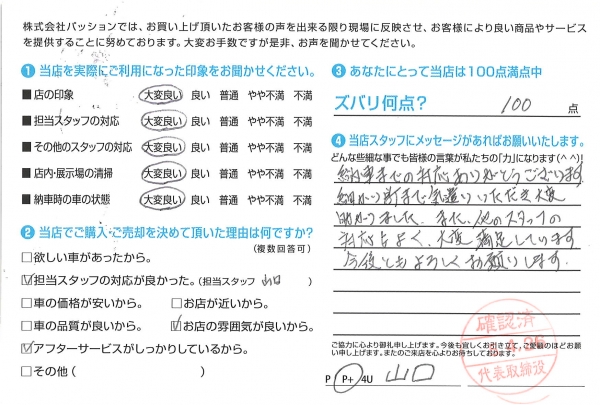 株式会社パッションでは、お買い上げ頂いたお客様の声を出来る限り現場に反映させ、お客様により良い商品やサービス
を提供することに努めております。大変お手数ですが是非、お声を聞かせてください。
1 当店を実際にご利用になった印象をお聞かせください。
■店の印象 大変良い 良い 普通 やや不満 不満
■担当スタッフの対応 大変良い 良い 普通 やや不満 不満
■その他のスタッフの対応 大変良い 良い 普通 やや不満 不満
■店内・展示場の清掃 大変良い 良い 普通 やや不満 不満
■納車時の車の状態 大変良い 良い 普通 やや不満 不満
2 当店でご購入・ご売却を決めて頂いた理由は何ですか?
(複数回答可)
□欲しい車があったから。
☑担当スタッフの対応が良かった。(担当スタッフ 山口 )
□車の価格が安いから。 □お店が近いから。
□車の品質が良いから。 ☑お店の雰囲気が良いから。
☑アフターサービスがしっかりしているから。
□その他( )
3 あなたにとって当店は100点満点中
ズバリ何点? 100 点
4 当店スタッフにメッセージがあればお願いいたします。
どんな些細な事でも皆様の言葉が私たちの「力」になります(^ ^)!
納車までの対応ありがとうございます
細かり所まで気遣いいただき大変
助かりました。また、他のスタッフの
対応もよく、大変満足しています
今後ともよろしくお願いします。
ご協力に心より御礼申し上げます。今後も宜しくお引き立て、ご愛顧のほどお願
い申し上げます。またのご来店を心よりお待ちしております。
P P+ 4U 山口
確認済
代表取締役